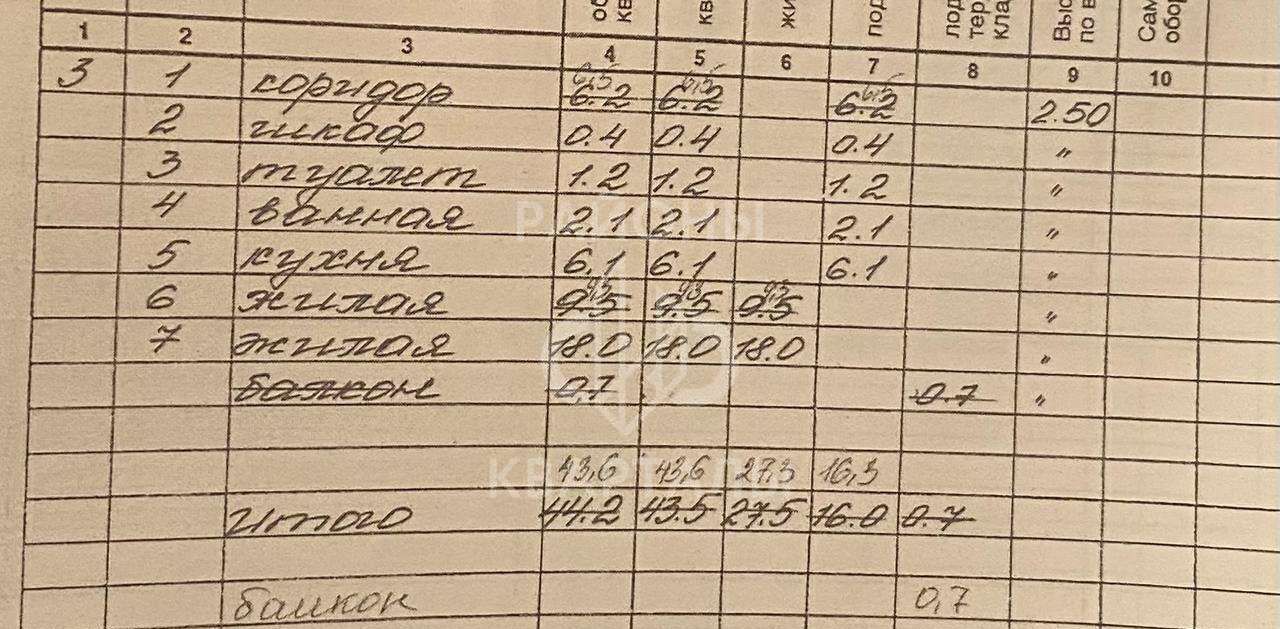 об кв жи под лод тер кла Выс по в Сам обор
1 2 3 4 5 6 7 8 9 10
6,5 6,5 6,5
3 1 коридор 6.2 6.2 6.2 2.50
2 шкаф 0.4 0.4 0.4 "
3 туалет 1.2 1.2 1.2 "
4 ванная 2.1 2.1 2.1 "
5 кухня 6.1 6.1 6.1 "
9,3 9,3 9,3
6 жилая 9.5 9.5 9.5 "
7 жилая 18.0 18.0 18.0 "
балкон 0,7 0.7 "
43,6 43,6 27,3 16,3
итого 44.2 43.5 27.5 16.0 0.7
балкон 0,7
РАЙОНЫ
КВАРТАЛЫ